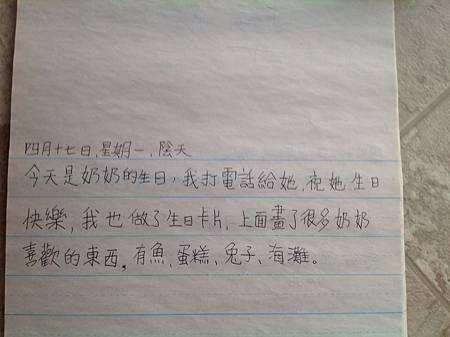 四月十七日,星期一,陰天
今天是奶奶的生日,我打電話給她,祝她生日
快樂,我也做了生日卡片,上面畫了很多奶奶
喜歡的東西,有魚、蛋糕、兔子、海灘。